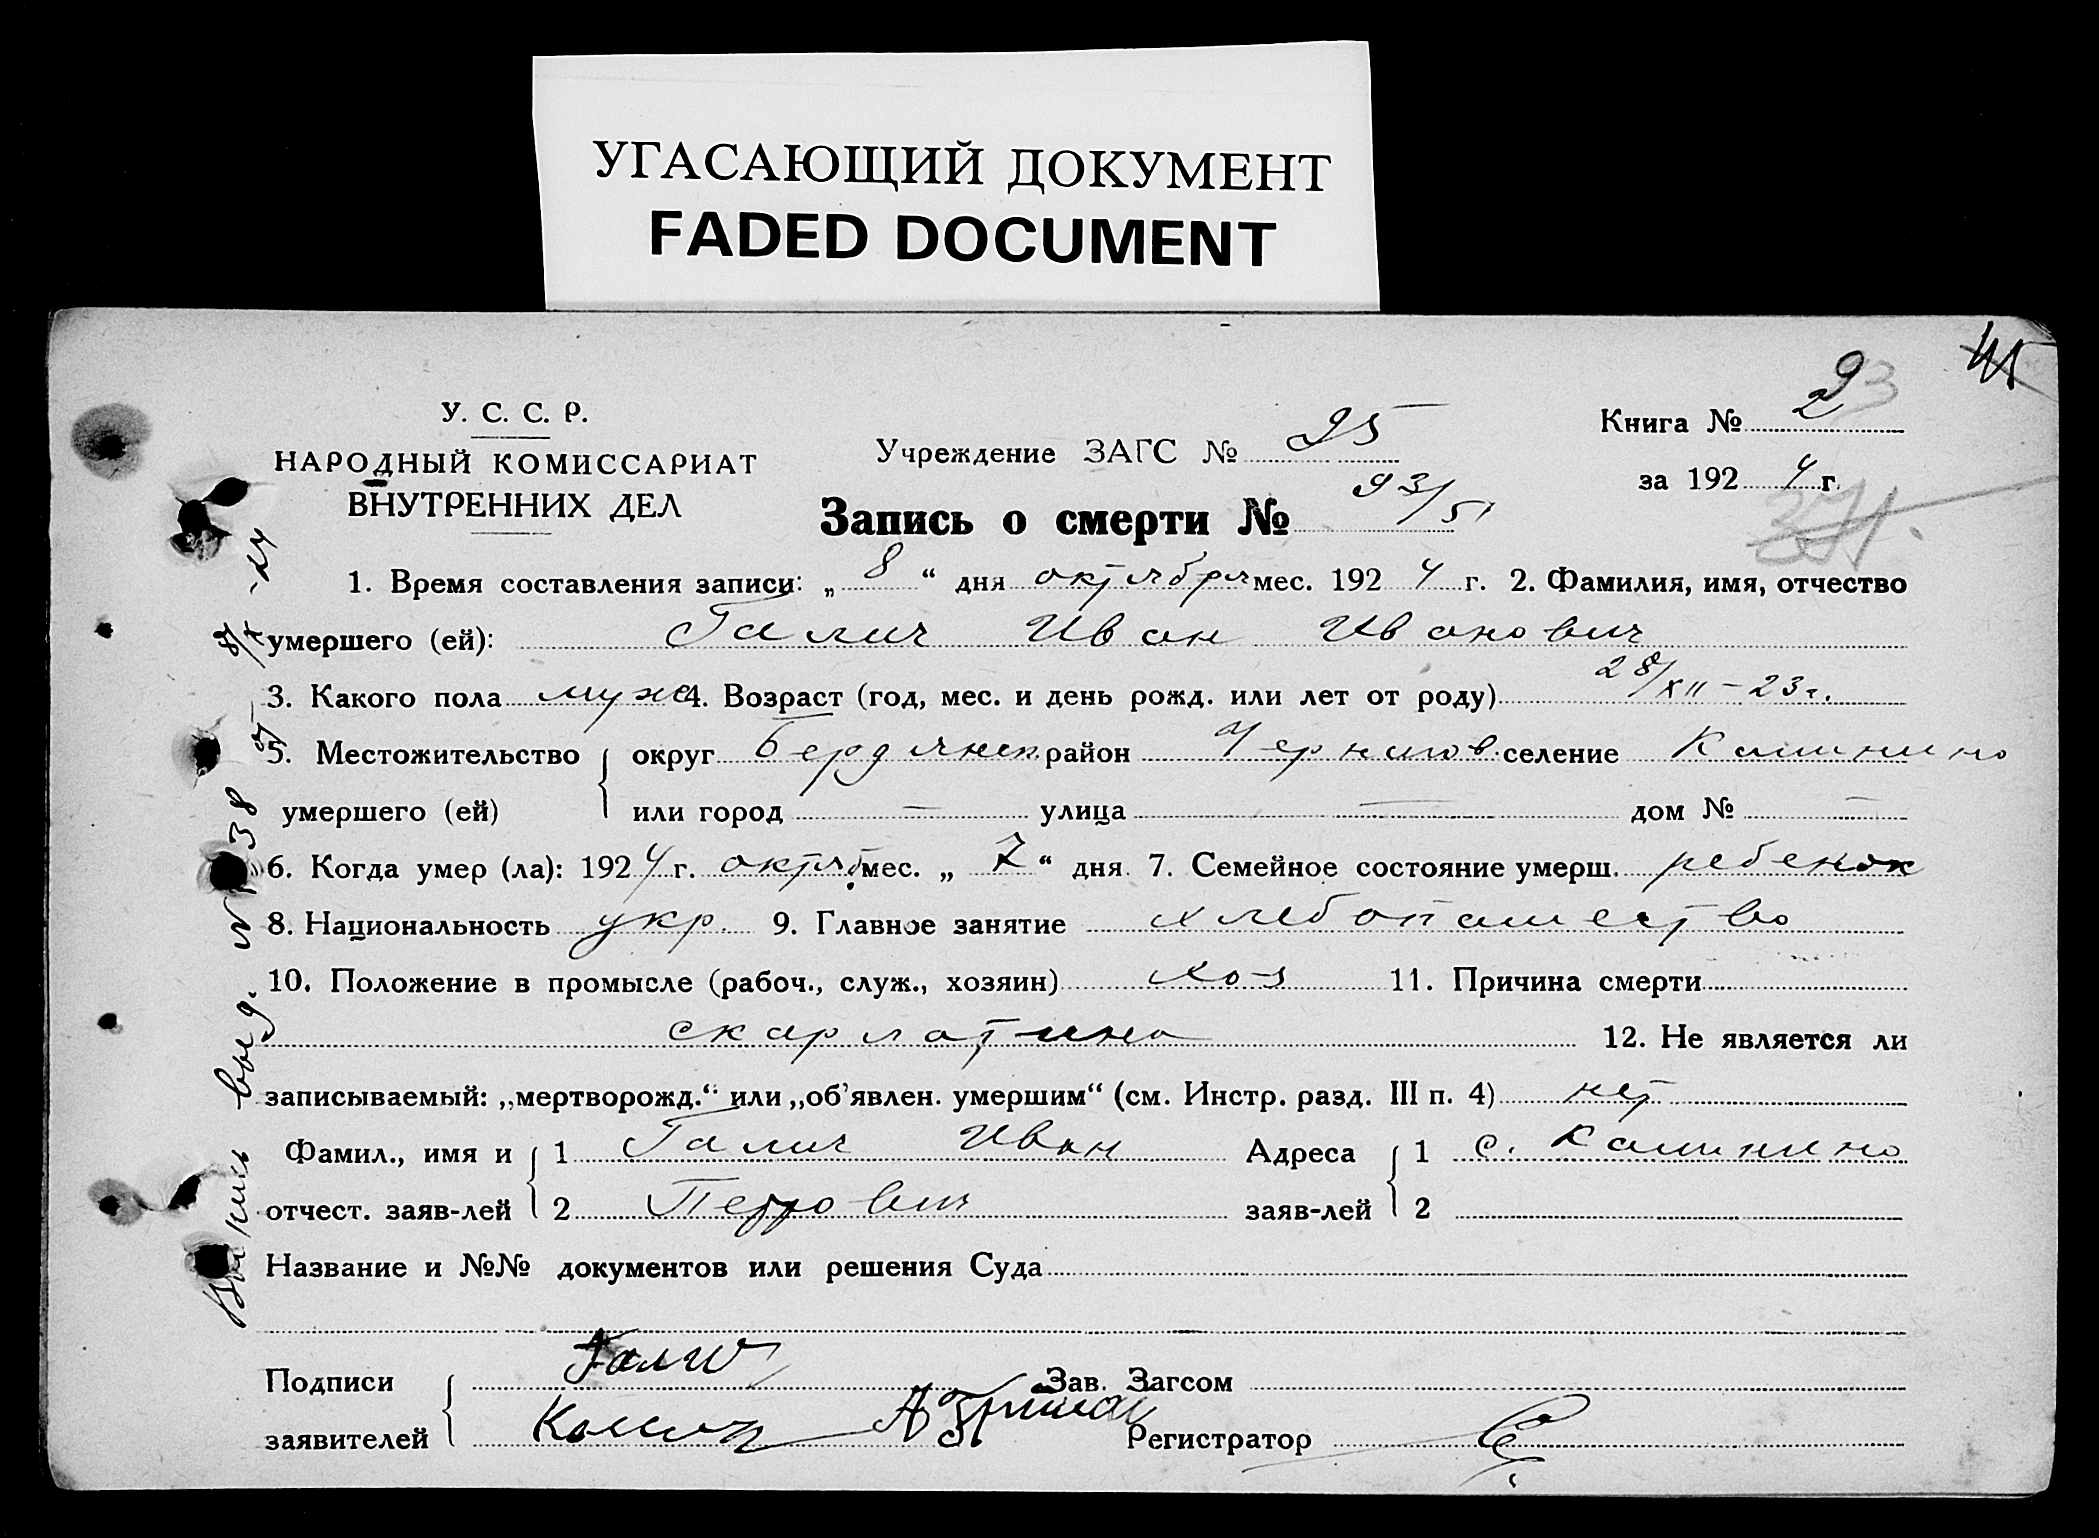 УГАСАЮЩИЙ ДОКУМЕНТ
FADED DOCUMENT
45
У. С. С. Р.
НАРОДНЫЙ КОМИССАРИАТ
ВНУТРЕННИХ ДЕЛ
Учреждение ЗАГС № 25
Книга № 2 3
за 1924 г.
Запись о смерти № 93/51
1. Время составления записи: „ 8 “ дня октября мес. 1924 г. 2. Фамилия, имя, отчество
умершего (ей): Галич Иван Иванович
3. Какого пола муж 4. Возраст (год, мес. и день рожд. или лет от роду) 28/XII – 23 г.
5. Местожительство умершего (ей) округ Бердянск район Чернигов. селение Калинино
или город — улица — дом № —
6. Когда умер (ла): 1924 г. октяб. мес. „ 7 “ дня. 7. Семейное состояние умерш. ребенок
8. Национальность укр. 9. Главное занятие хлебопашество
10. Положение в промысле (рабоч., служ., хозяин) хоз 11. Причина смерти
скарлатина 12. Не является ли
записываемый: „мертворожд.“ или „об'явлен. умершим“ (см. Инстр. разд. III п. 4) нет
Фамил., имя и отчест. заяв-лей 1 Галич Иван Адреса заяв-лей 1 с. Калинино
2 Петрович 2
Название и №№ документов или решения Суда
Подписи заявителей Галич Зав. Загсом
Регистратор
выд. № 38
8/X - 24